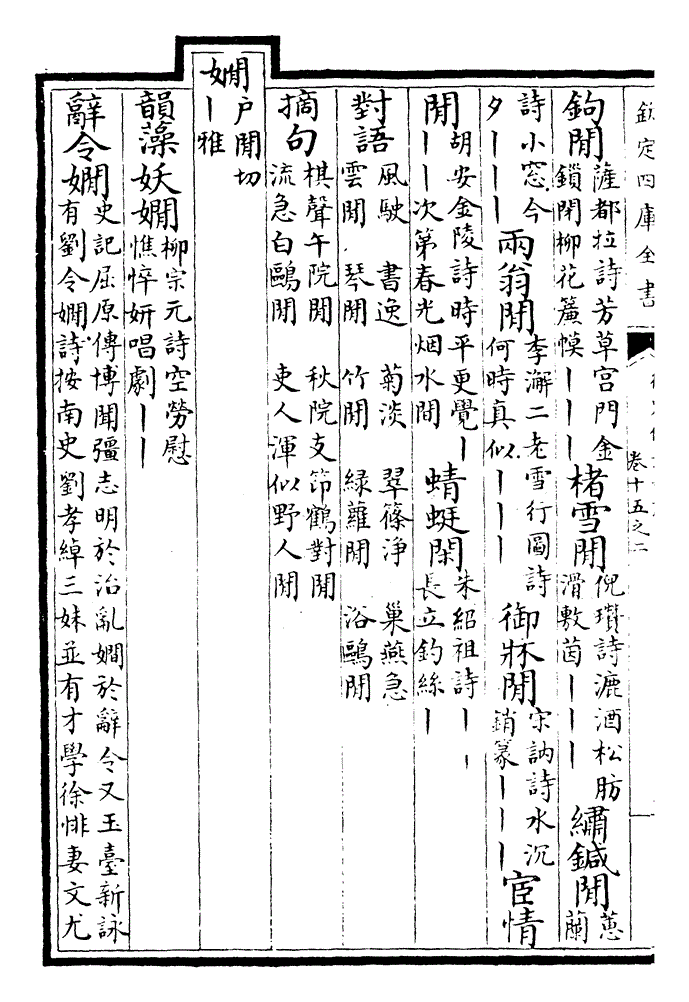 欽定四庫全書
卷十五之二
鉤閒 薩都拉詩芳草宮門金鎖閉柳花簾幙丨丨丨 楮雪閒 倪瓚詩漉酒松肪滑敷茵丨丨丨 繡鍼閒 蕙蘭
詩小窓今夕丨丨丨 兩翁閒 李澥二老雪行圖詩何時真似丨丨丨 御牀閒 宋訥詩水沉銷篆丨丨丨 宦情
閒 胡安金陵詩時平更覺丨丨丨次第春光烟水間 蜻蜓閑 朱紹祖詩丨丨長立釣絲丨
對語 風駛雲閒 書逸琴閒 菊淡竹閒 翠篠淨綠蘿閒 巢燕急浴鷗閒
摘句 棋聲午院閒 秋院支笻鶴對閒 流急白鷗閒 吏人渾似野人閒
嫺 戶閒切丨雅
韻藻 妖嫺 柳宗元詩空勞慰憔悴妍唱劇丨丨
辭令嫺 史記屈原傳博聞彊志明於治亂嫺於辭令又玉臺新詠有劉令嫺詩按南史劉孝綽三妹並有才學徐悱妻文尤